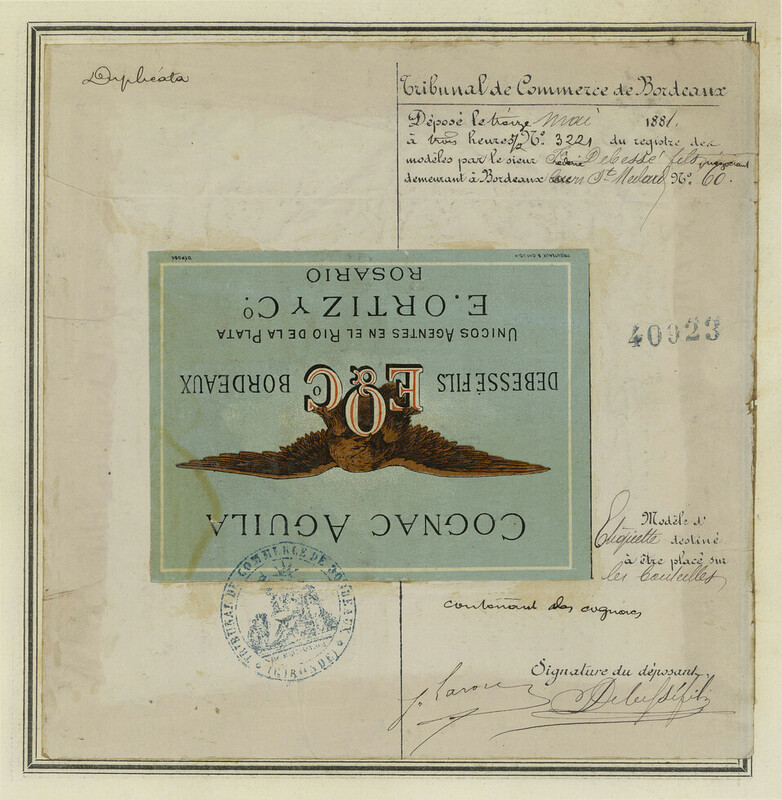 Duplicata
Tribunal de Commerce de Bordeaux
Déposé le treize mai 1881.
à trois heures Nº 3221 du registre des
modèles par le sieur Debessé fils négociant
demeurant à Bordeaux cours St Médard Nº 60.
COGNAC AGUILA
DEBESSÉ FILS E.O & Co BORDEAUX
UNICOS AGENTES EN EL RIO DE LA PLATA
E. ORTIZ Y Co.
ROSARIO
DÉPOSÉ
40923
Modèle d'
Etiquette destiné
à être placé sur
les bouteilles
contenant des cognacs
TRIBUNAL DE COMMERCE DE BORDEAUX
(GIRONDE)
Signature du déposant
Debessé fils